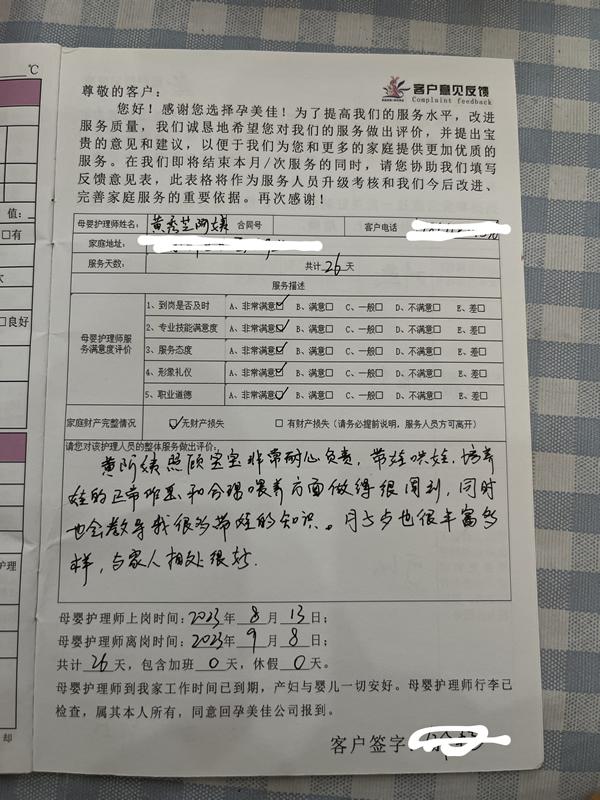 ℃
客户意见反馈
Complaint feedback
尊敬的客户：
您好！感谢您选择孕美佳！为了提高我们的服务水平，改进
服务质量，我们诚恳地希望您对我们的服务做出评价，并提出宝
贵的意见和建议，以便于我们为您和更多的家庭提供更加优质的
服务。在我们即将结束本月/次服务的同时，请您协助我们填写
反馈意见表，此表格将作为服务人员升级考核和我们今后改进、
完善家庭服务的重要依据。再次感谢！
值：
□有
□良好
护理
却
母婴护理师姓名： 黄秀芝阿姨 合同号 客户电话
家庭地址：
服务天数： 共计26天
服务描述
母婴护理师服务满意度评价
1、到岗是否及时 A、非常满意☑ B、满意□ C、一般□ D、不满意□ E、差□
2、专业技能满意度 A、非常满意☑ B、满意□ C、一般□ D、不满意□ E、差□
3、服务态度 A、非常满意☑ B、满意□ C、一般□ D、不满意□ E、差□
4、形象礼仪 A、非常满意☑ B、满意□ C、一般□ D、不满意□ E、差□
5、职业道德 A、非常满意☑ B、满意□ C、一般□ D、不满意□ E、差□
家庭财产完整情况 ☑无财产损失 □有财产损失（请务必提前说明，服务人员方可离开）
请您对该护理人员的整体服务做出评价：
黄阿姨照顾宝宝非常耐心负责，带娃哄娃，培养
娃的正常作息和合理喂养方面做得很周到，同时
也会教导我很多带娃的知识。月子歺也很丰富多
样，与家人相处很好.
母婴护理师上岗时间：2023年8月13日；
母婴护理师离岗时间：2023年9月8日；
共计26天，包含加班0天，休假0天。
母婴护理师到我家工作时间已到期，产妇与婴儿一切安好。母婴护理师行李已
检查，属其本人所有，同意回孕美佳公司报到。
客户签字：